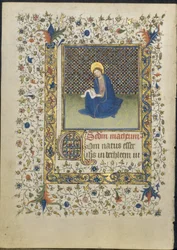 Scdm matheum
Cum natus esset
ihs in bethleem iu